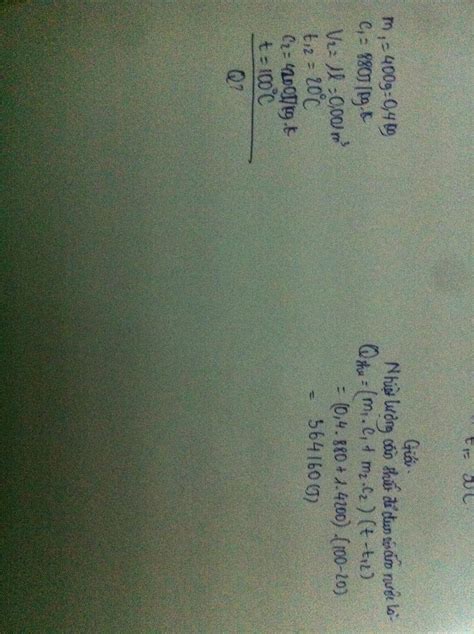 m₁ = 400g = 0,4 kg
c₁ = 880J/kg.k
V₂ = 1l = 0,001m³
t₁₂ = 20°C
c₂ = 4200J/kg.k
t = 100°C
Q?
t₁ = 20°C
Giải.
Nhiệt lượng cần thiết để đun ấm nước là:
= (m₁.c₁ + m₂.c₂) (t - t₁₂)
= (0,4.880 + 1.4200).(100-20)
= 364160(J)